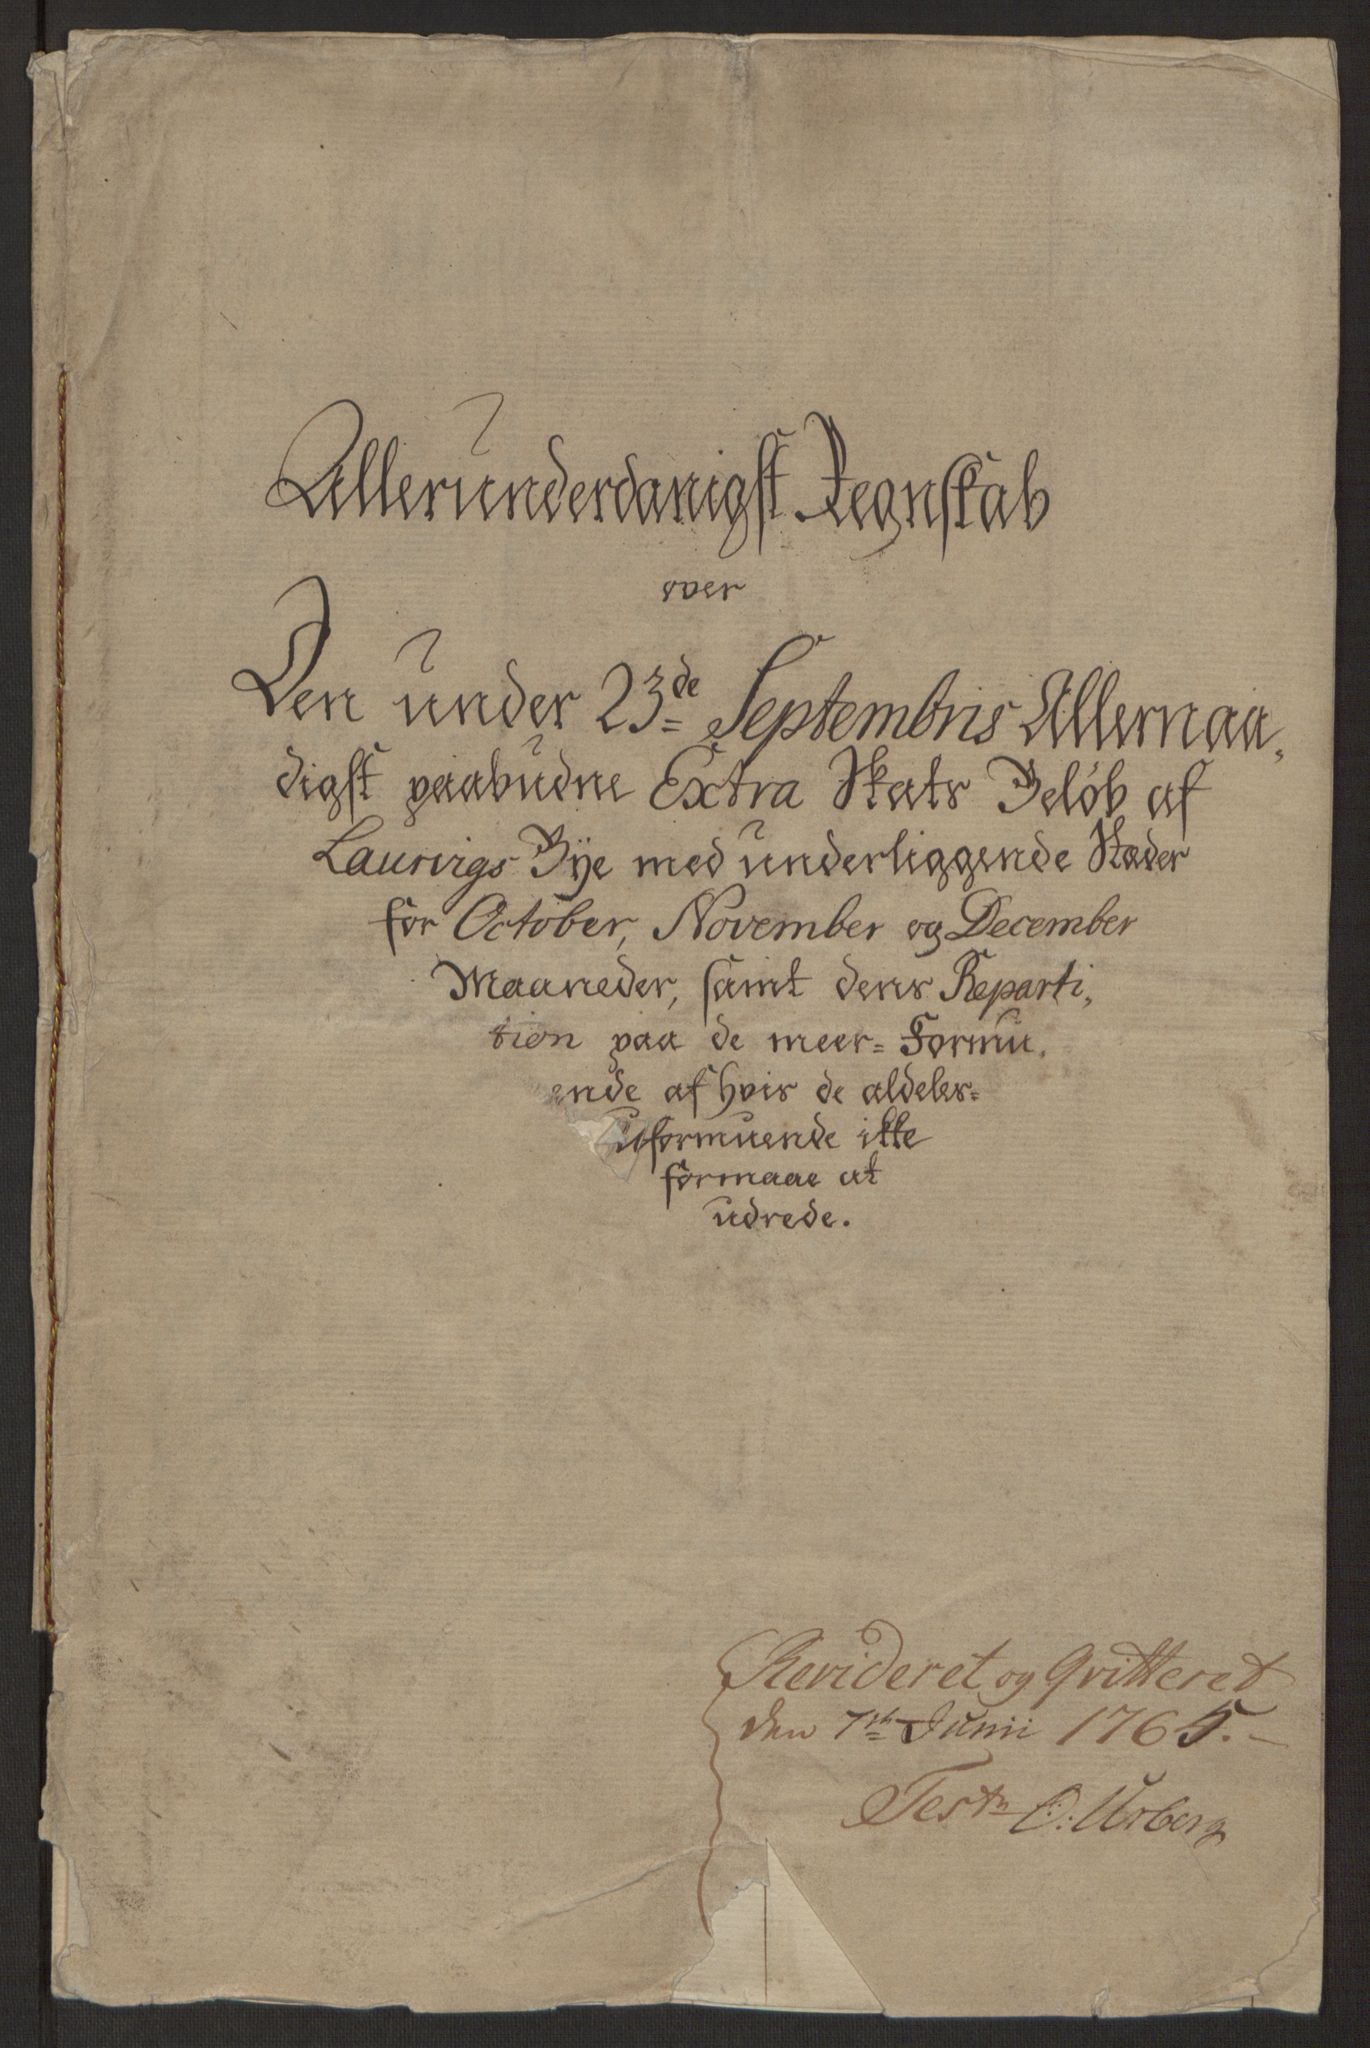 Allerunderdanigst Regnskab
over
Den under 23de Septembris Allernaa,
digst paabudne Extra Skats Beløb af
Laurvigs Bye med underliggende Stæder
for October, November og December
Maaneder, samt dens Reparti,
tion paa de meer= Formu,
ende af hvis de aldeles=
Uformuende ikke
formaae at
udrede.
Revideret og Qvitteret
den 7de Junii 1765.-
Test. O: Urberg